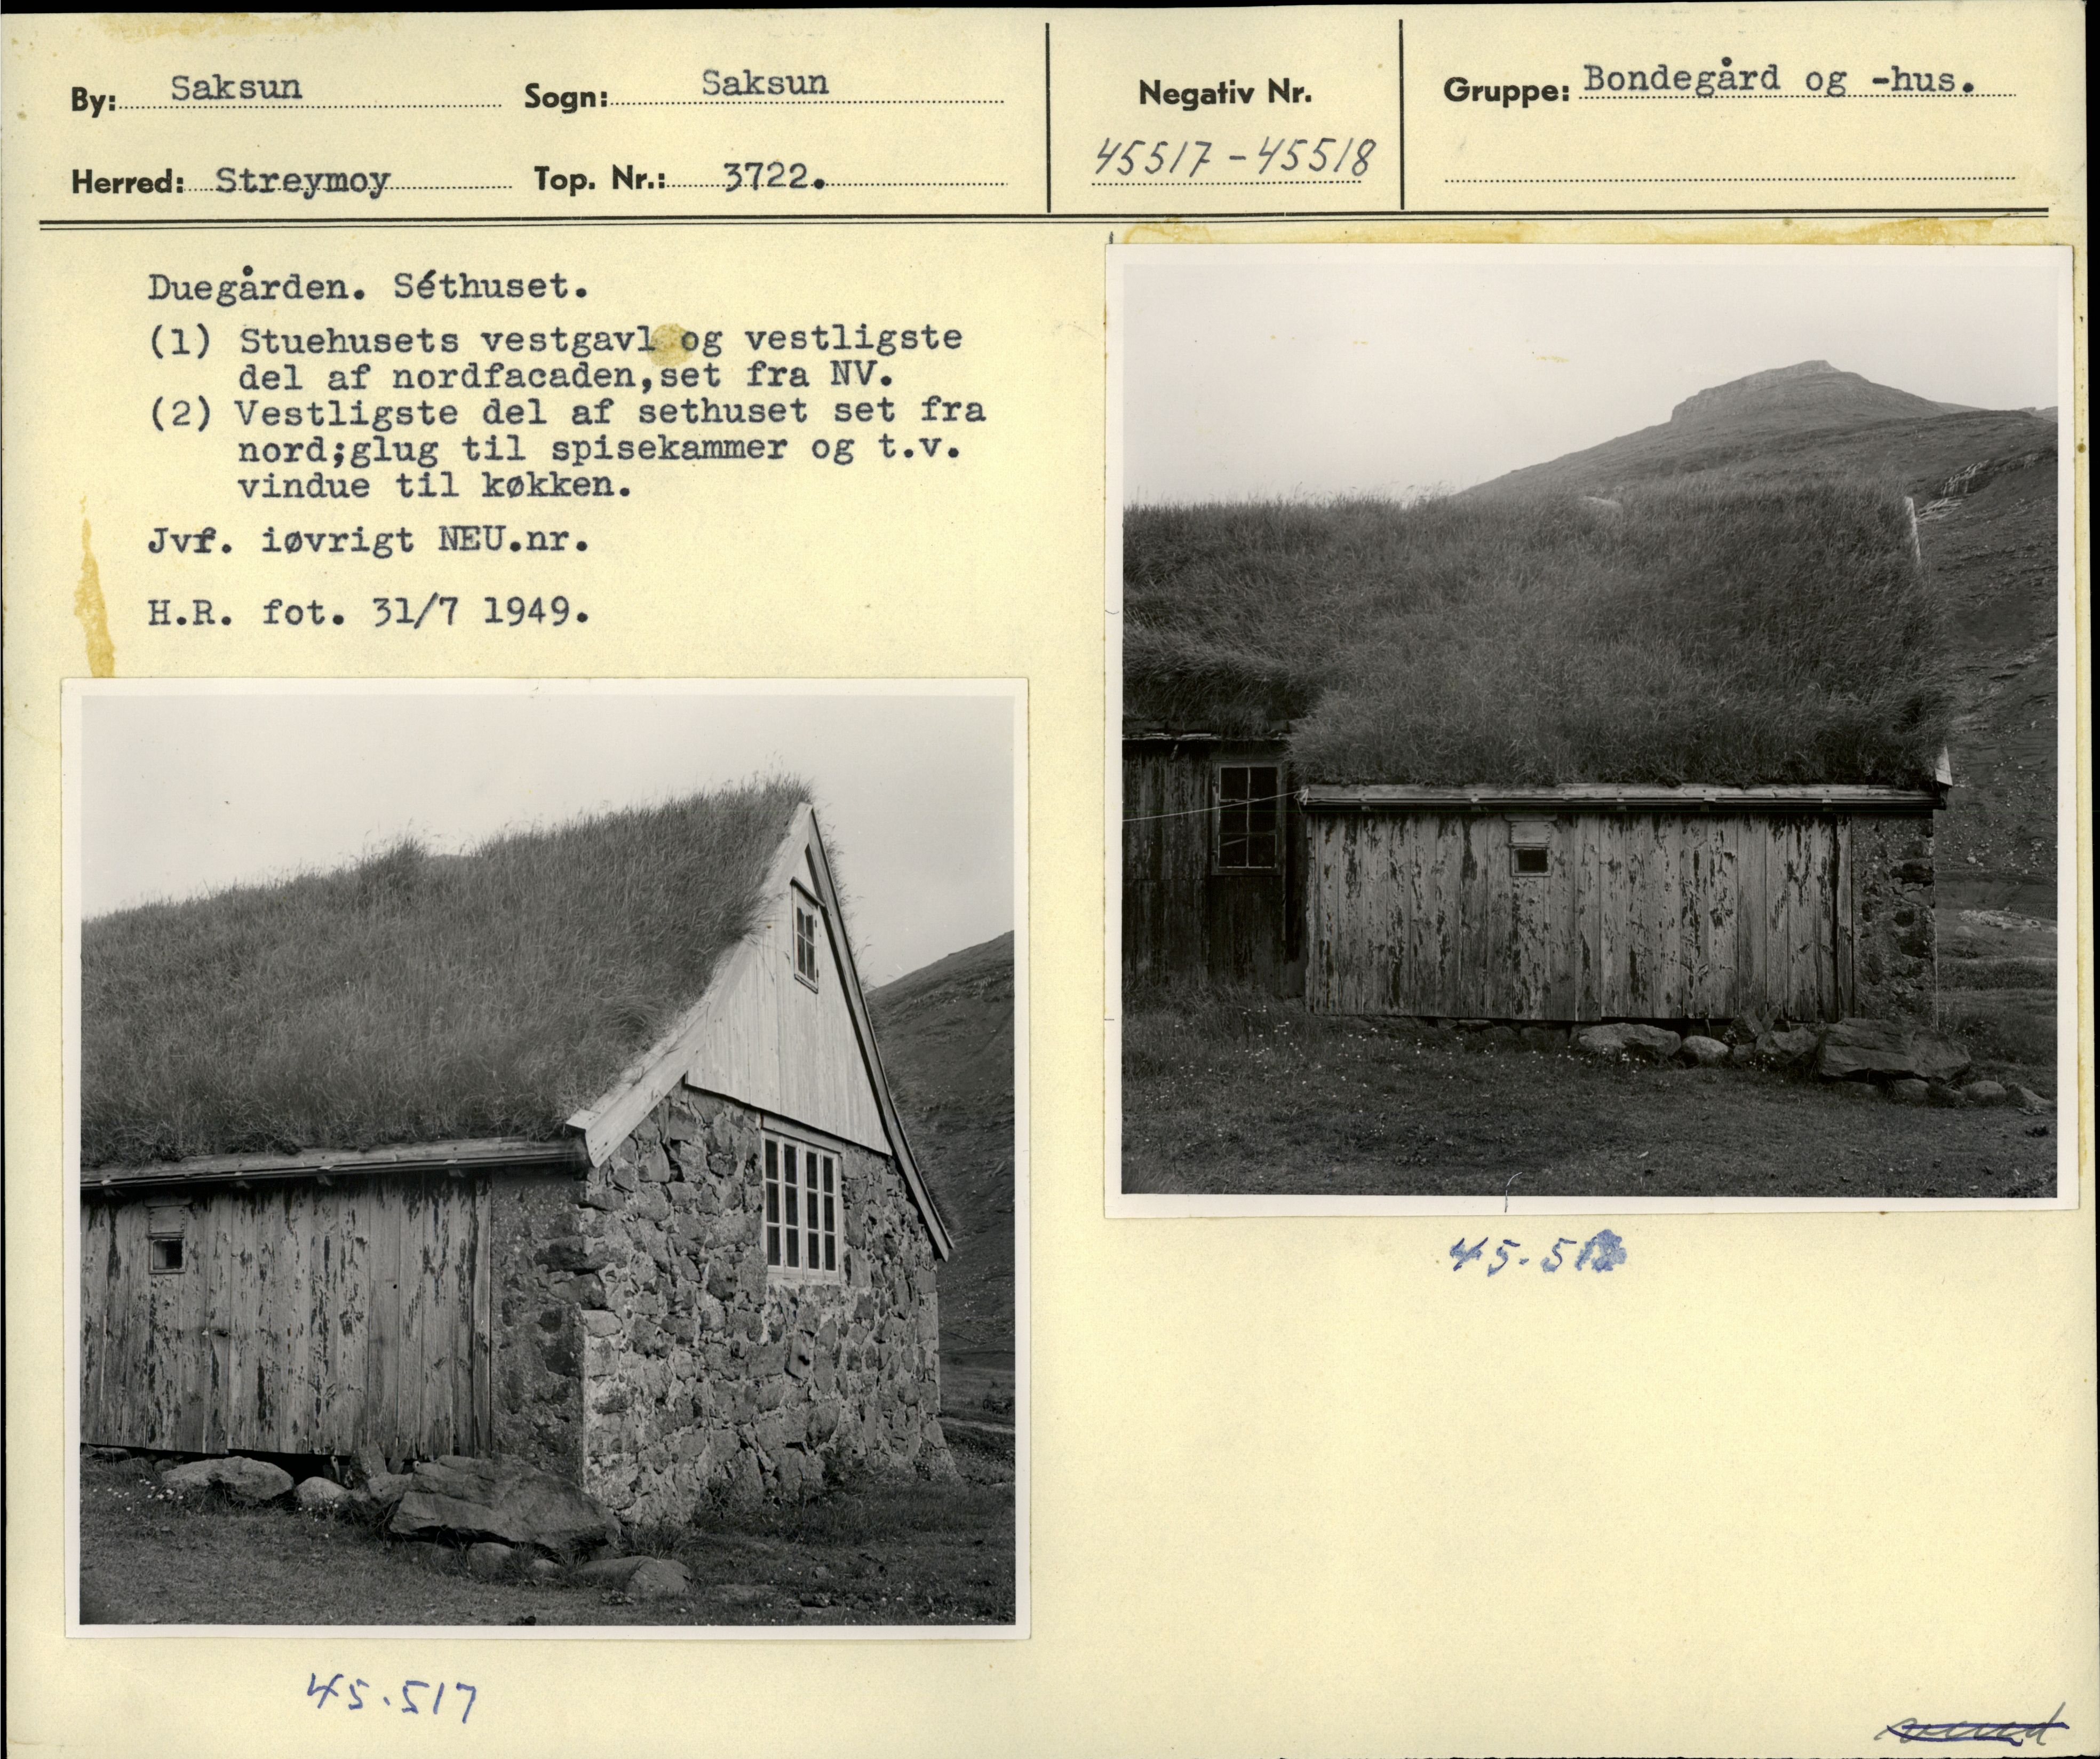 By: Saksun Sogn: Saksun Negativ Nr. Gruppe: Bondegård og -hus.
Herred: Streymoy Top. Nr.: 3722. 45517-45518
Duegården. Séthuset.
(1) Stuehusets vestgavl og vestligste
del af nordfacaden,set fra NV.
(2) Vestligste del af sethuset set fra
nord;glug til spisekammer og t.v.
vindue til køkken.
Jvf. iøvrigt NEU.nr.
H.R. fot. 31/7 1949.
45-518
45.517